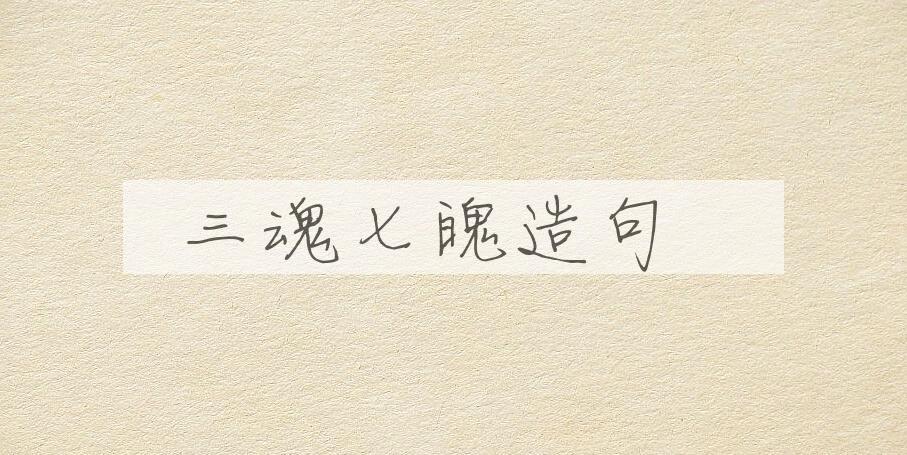 三魂七魄造句